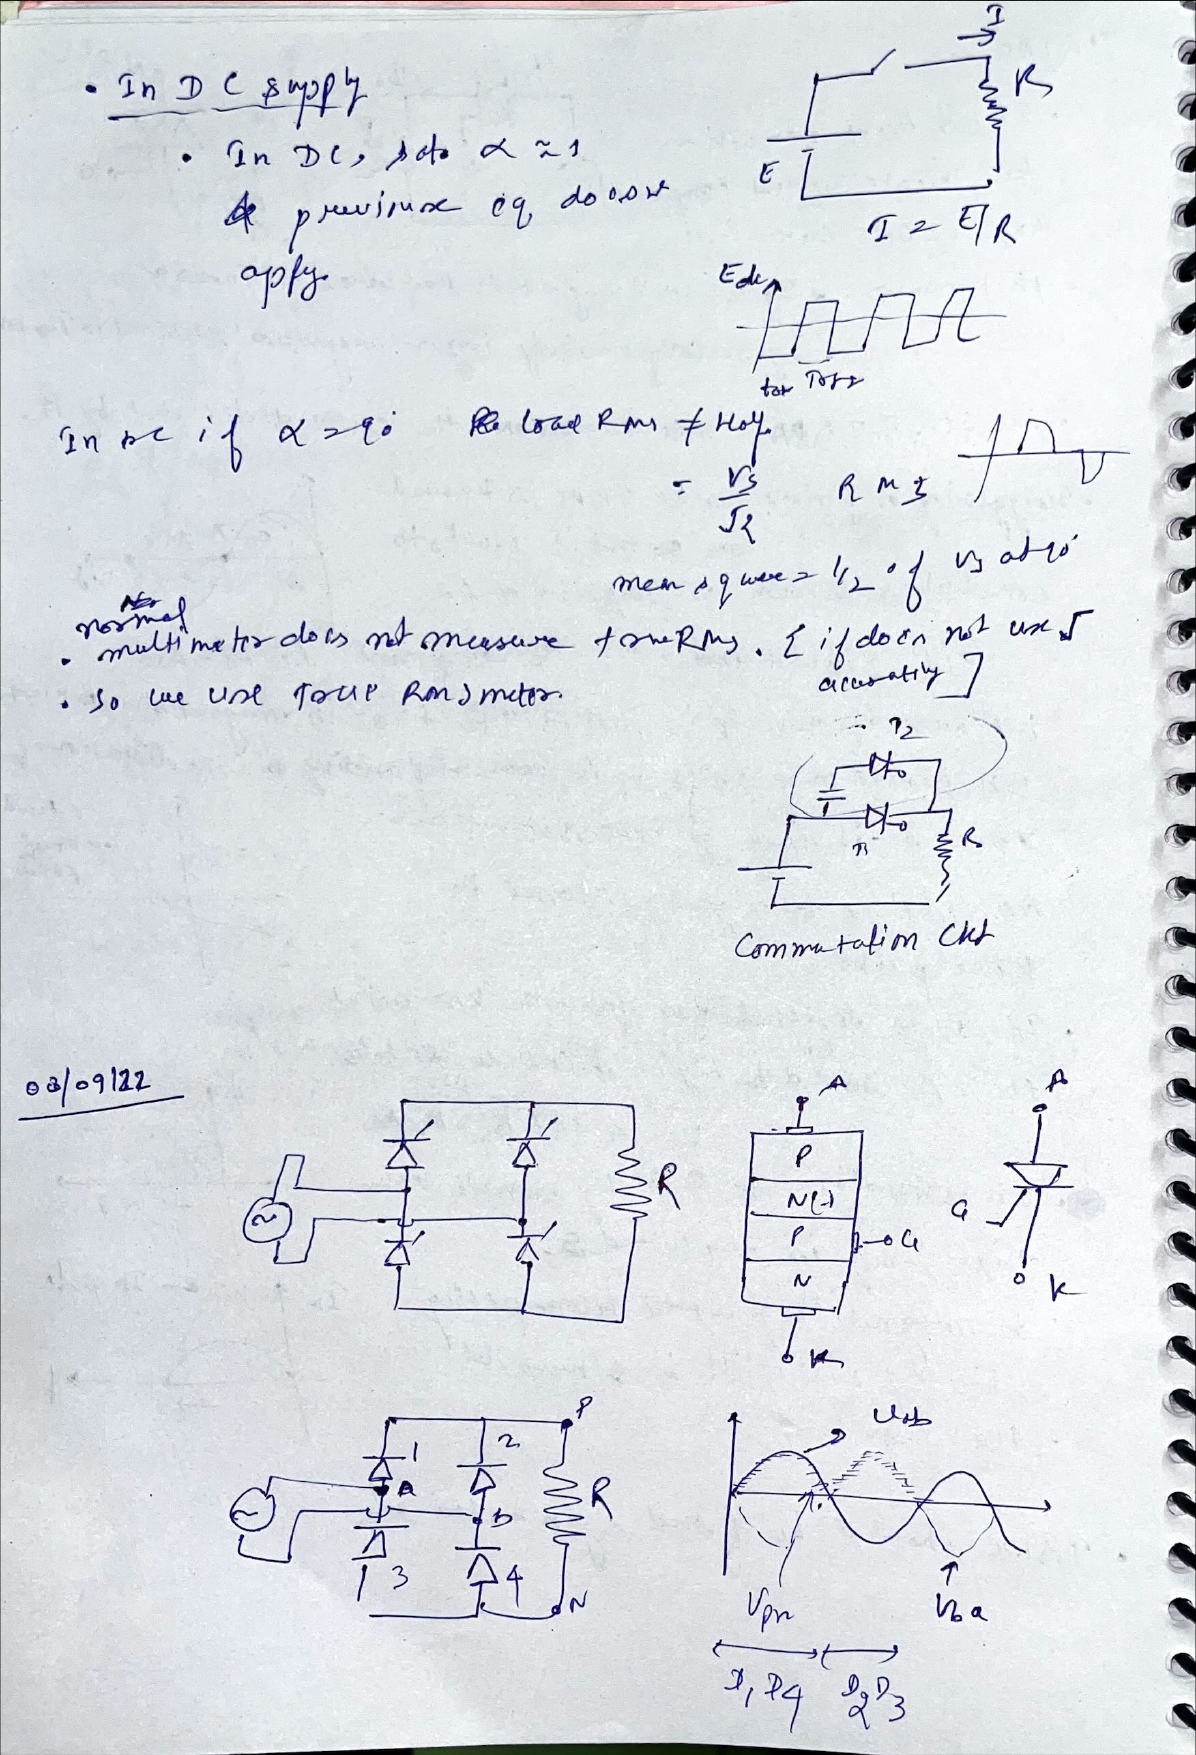 • In DC supply
• In DC,
previous eq
apply
I
R
E
I = E/R
Edc
Toff
In if α = 90 load Rms ≠ Half
= Vs/√2 RMS
mean square = 1/2 of Vs at 90°
normal
• multimeter does not measure true Rms. [if does not use √
accurately]
• so we use True RMS meter.
T2
T1
R
Commutation Ckt
03/09/22
R
A
P
N(-)
P
N
G
K
A
G
K
P
1
2
a
b
R
3
4
N
Vab
Vpn
Vba
D1 D4 D2 D3